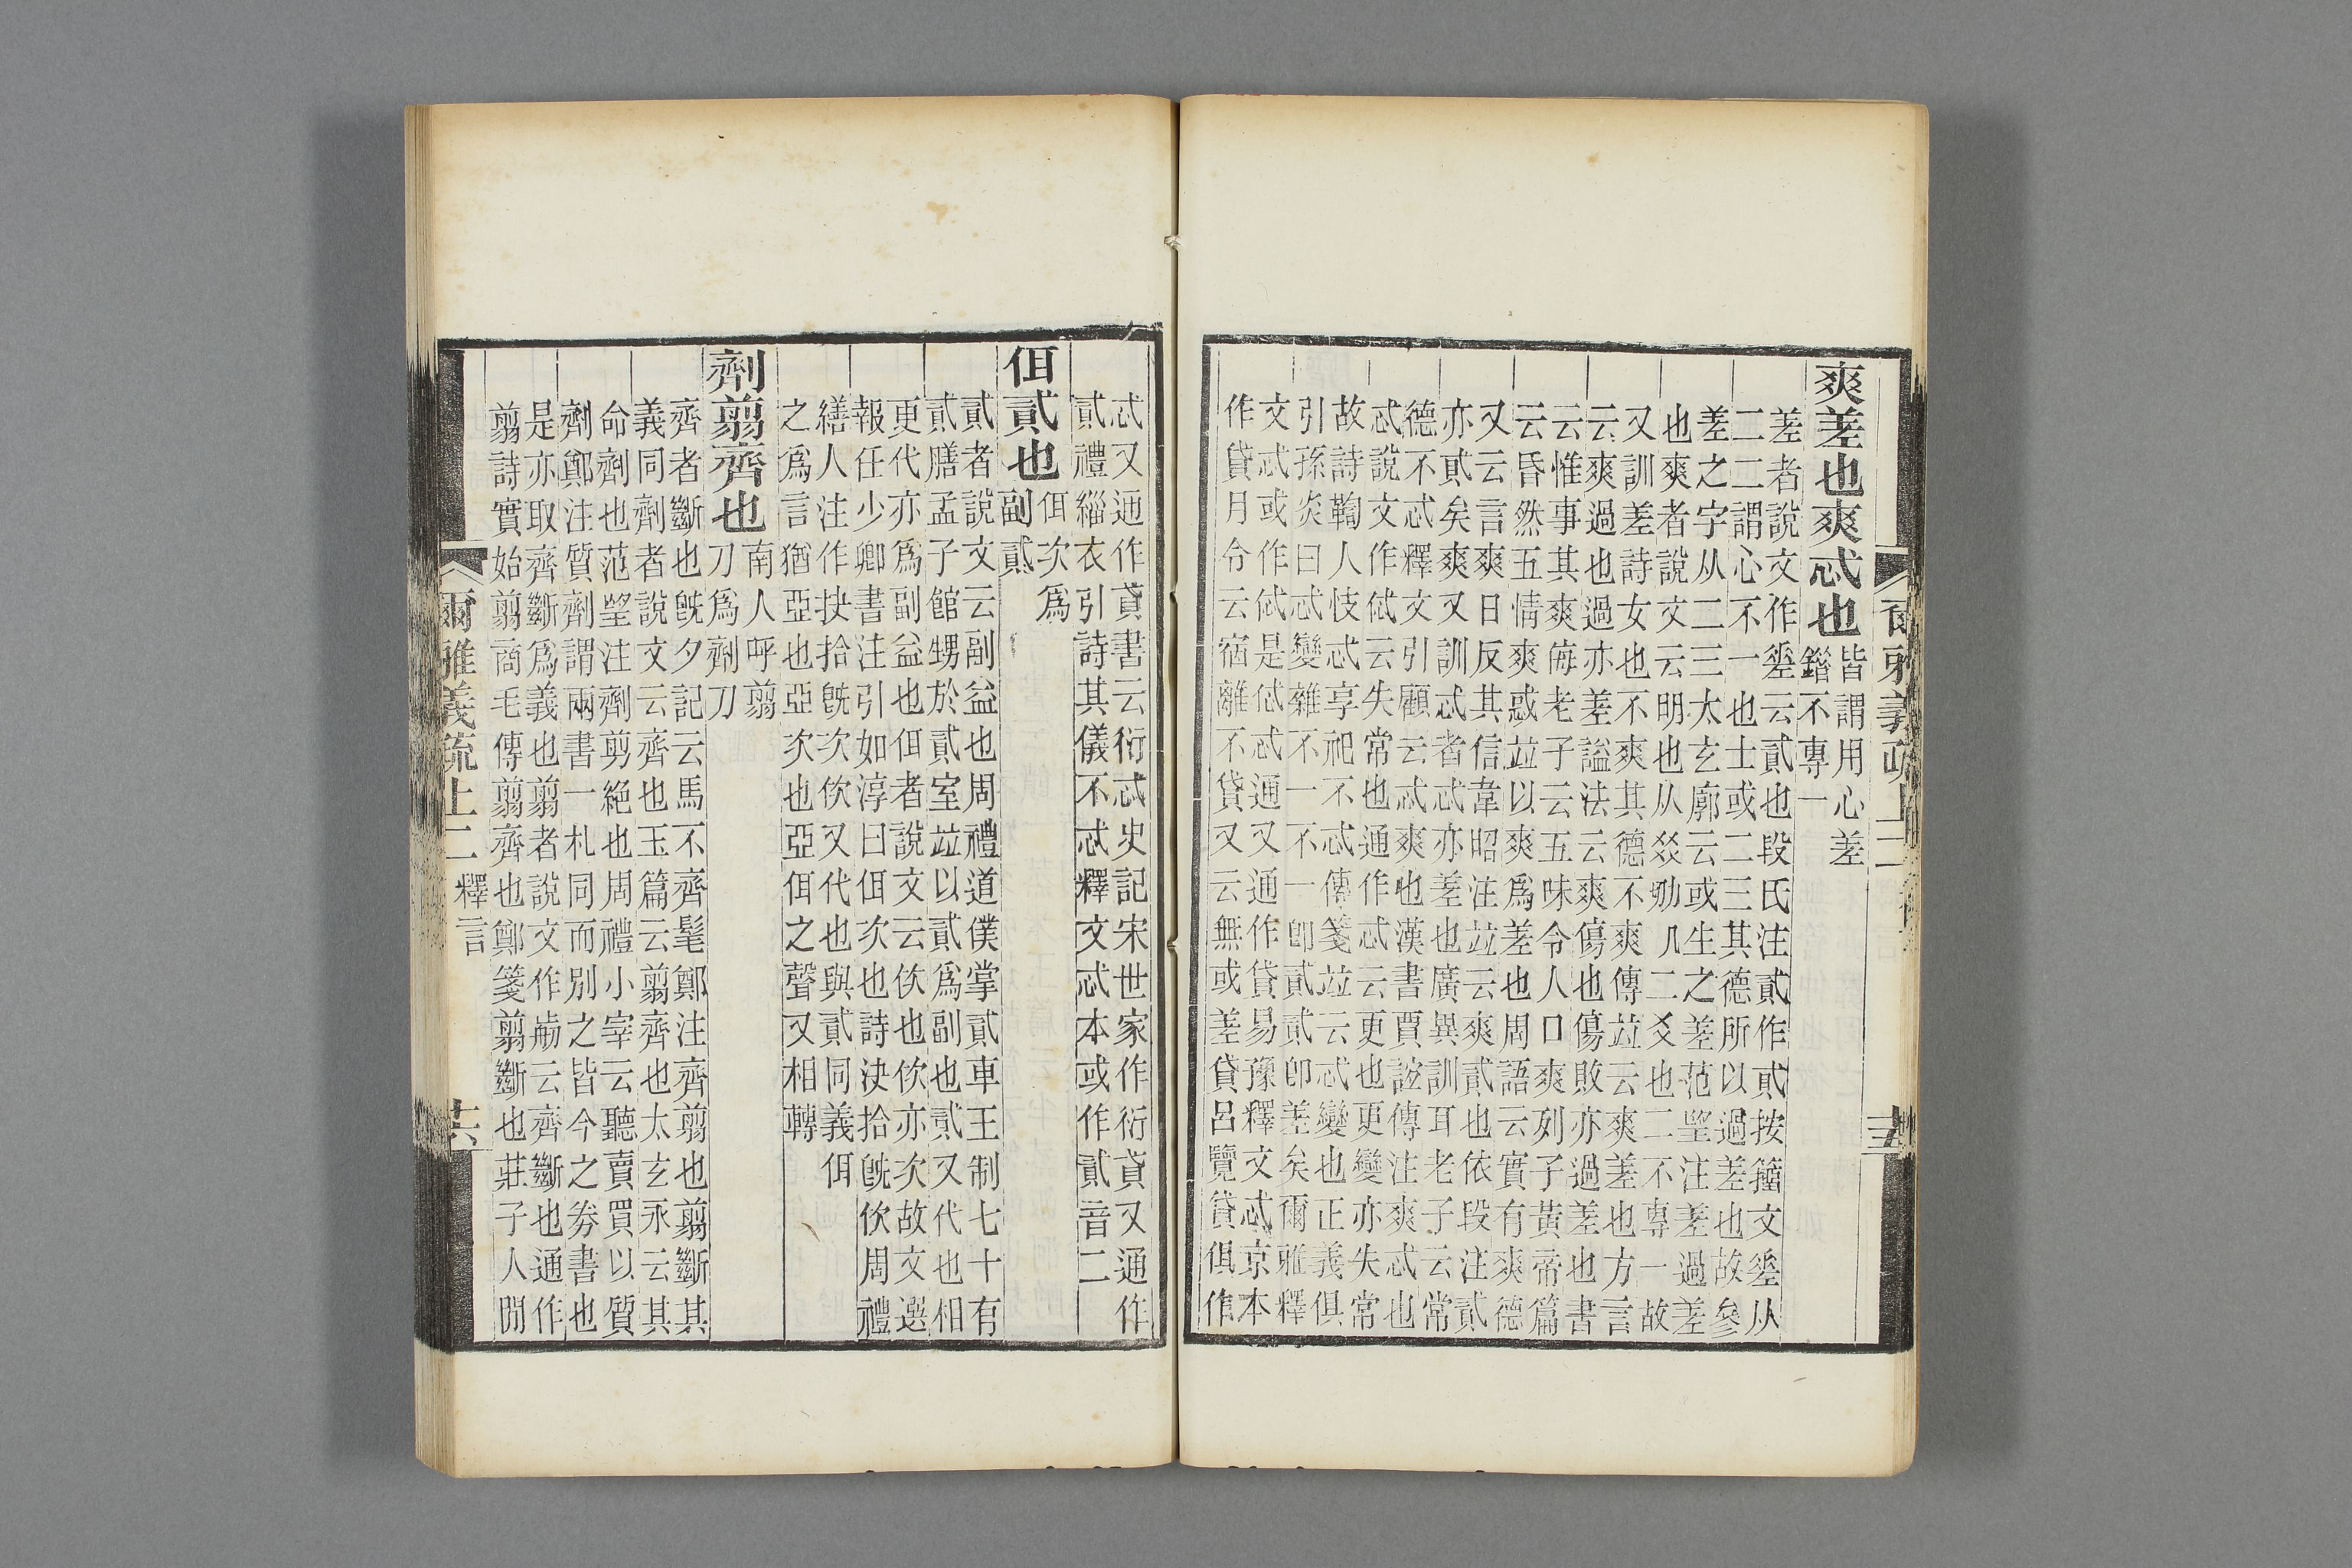 爾雅義疏上二
十五
爽差也爽忒也
皆謂用心差
錯不專一
差者說文作𢀩云貳也段氏注貳作貳按籀文𢀩从
二二謂心不一也士或二三其德所以過差也故參
差之字从二三太玄廓云或生之差范望注差過差
也爽者說文云明也从㸚几二爻也二不專一故
又訓差詩女也不爽其德不爽傳竝云爽差也方言
云爽過也過亦差謚法云爽傷也傷敗亦過差也書
云惟事其爽侮老子云五味令人口爽列子黃帝篇
云昏然五情爽惑竝以爽爲差也周語云實有爽德
又云言爽日反其信韋昭注竝云爽貳也依段注貳
亦貳矣爽又訓忒者忒亦差也廣異訓耳老子云常
德不忒釋文引顧云忒爽也漢書賈誼傳注爽忒也
忒說文作𢘍云失常也通作忒云更也更變亦失常
故詩鞫人忮忒享祀不忒傳箋竝云忒變也正義俱
引孫炎曰忒變雜不一不一卽貳貳卽差矣爾雅釋
文忒或作𢘍是𢘍忒通又通作貸易豫釋文忒京本
作貸月令云宿離不貸又云無或差貸呂覽貸俱作
忒又通作貣書云衍忒史記宋世家作衍貣又通作
貳禮緇衣引詩其儀不忒釋文忒本或作貳音二
佴貳也
佴次爲
副貳
貳者說文云副益也周禮道僕掌貳車王制七十有
貳膳孟子館甥於貳室竝以貳爲副也貳又代也相
更代亦爲副益也佴者說文云佽也佽亦次故文選
報任少卿書注引如淳曰佴次也詩決拾旣佽周禮
繕人注作抉拾旣次佽又代也與貳同義佴
之爲言猶亞也亞次也亞佴之聲又相轉
劑翦齊也
南人呼翦
刀爲劑刀
齊者斷也旣夕記云馬不齊髦鄭注齊翦也翦斷其
義同劑者說文云齊也玉篇云翦齊也太玄永云其
命劑也范望注劑剪絕也周禮小宰云聽賣買以質
劑鄭注質劑謂兩書一札同而別之皆今之券書也
是亦取齊斷爲義也翦者說文作剪云齊斷也通作
翦詩實始翦商毛傳翦齊也鄭箋翦斷也莊子人閒
爾雅義疏上二 釋言
十六